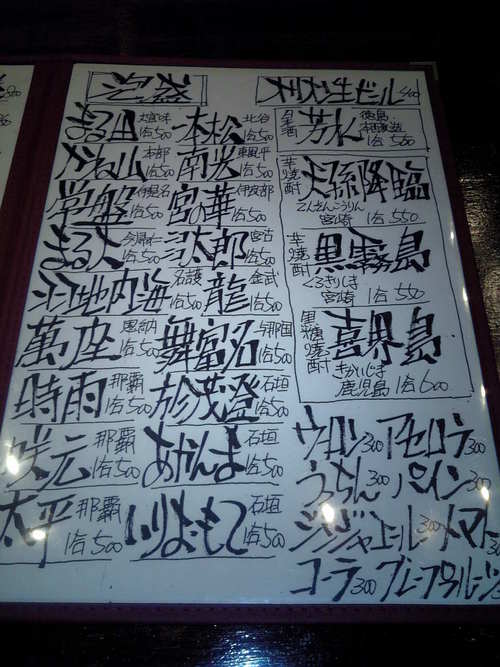 泡盛
まる田 大宜味 1合500
本松 北谷 1合500
かね山 本部 1合500
南光 東風平 1合500
常盤 伊是名 1合500
宮の華 伊良部 1合500
まる大 今帰仁 1合500
太郎 宮古 1合500
羽地内海 名護 1合500
龍 金武 1合500
萬座 恩納 1合500
舞富名 与那国 1合500
時雨 那覇 1合500
於茂登 石垣 1合500
咲元 那覇 1合500
あかんま 石垣 1合500
太平 那覇 1合500
いりおもて 石垣 1合500
オリオン生ビール 400
芳水 徳島 1合 500
芋焼酎 天孫降臨
てんそんこうりん
宮崎 1合 550
芋焼酎 黒霧島
くろきりしま
宮崎 1合 550
黒糖焼酎 喜界島
きかいじま
鹿児島 1合 600
ウーロン 300 アセロラ 300
うっちん 300 パイン 300
ジンジャエール 300 トマト
コーラ 300 グレープフルーツ